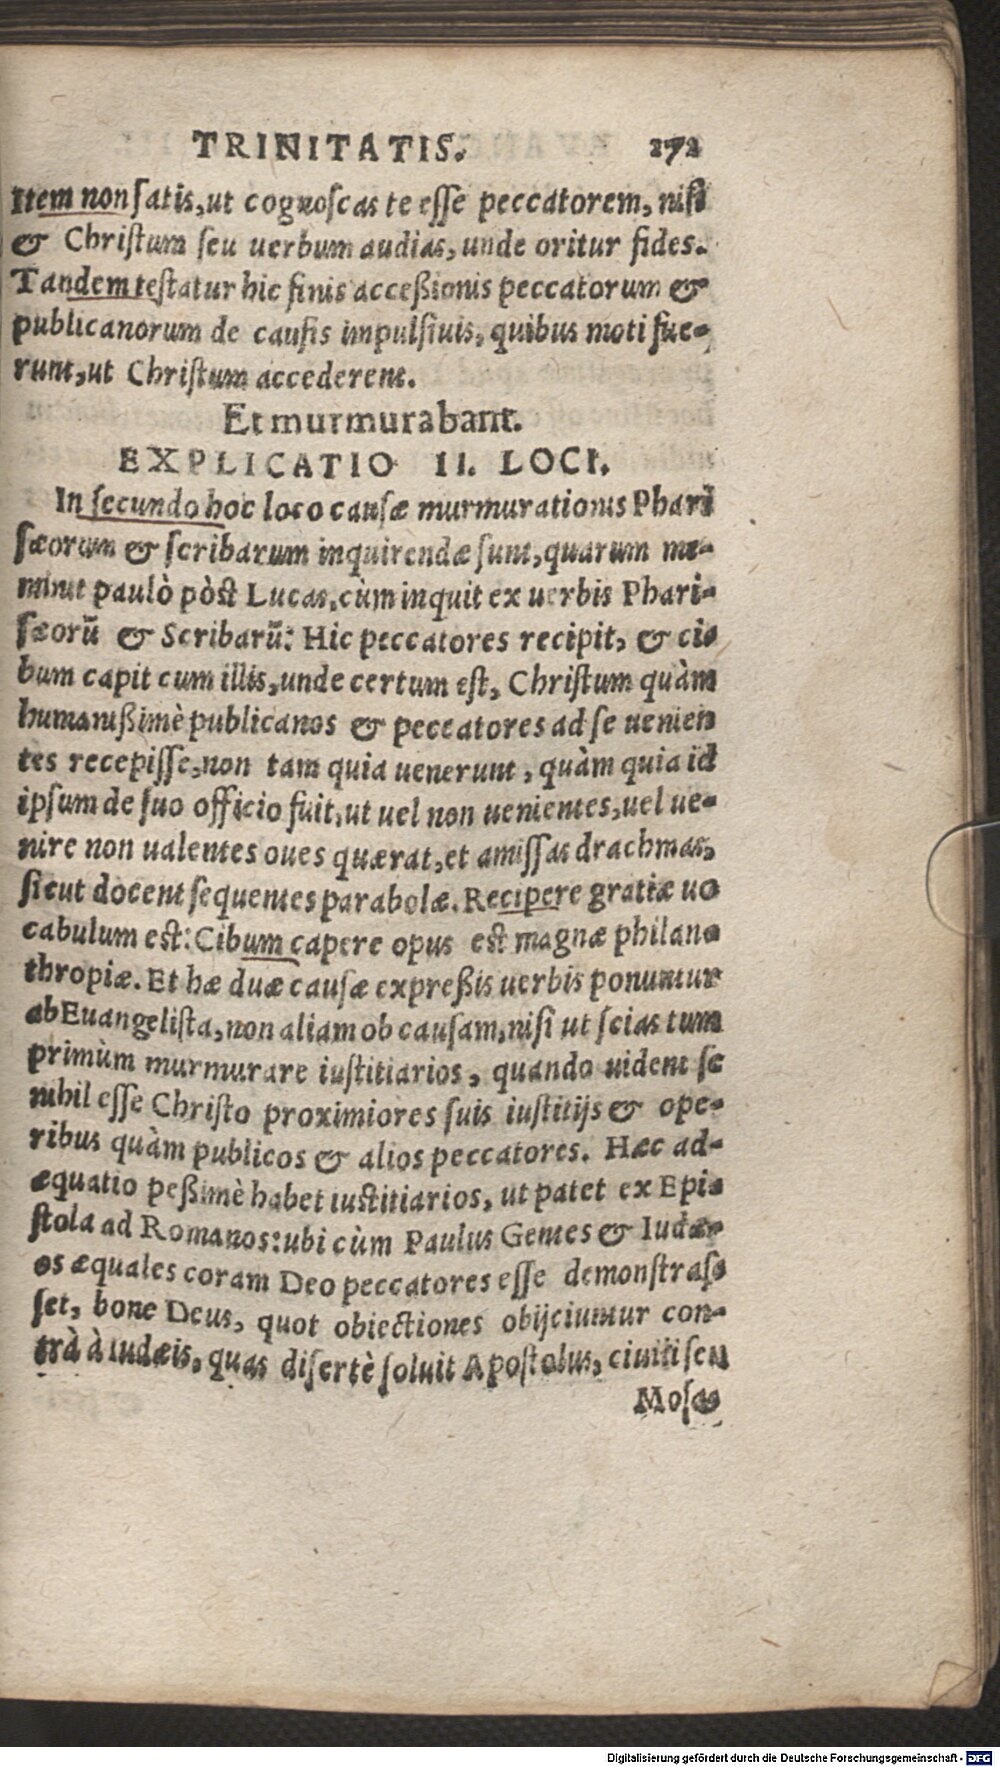 TRINITATIS. 272
Item non ſatis, ut cognoſcas te eſſe peccatorem, niſi
& Chriſtum ſeu uerbum audias, unde oritur fides.
Tandem teſtatur hic finis acceßionis peccatorum &
publicanorum de cauſis impulſiuis, quibus moti fue-
runt, ut Chriſtum accederent.
Et murmurabant.
EXPLICATIO II. LOCI.
In ſecundo hoc loco cauſæ murmurationis Phari
ſæorum & ſcribarum inquirendæ ſunt, quarum me-
minit paulò pòſt Lucas, cùm inquit ex uerbis Phari-
ſæorū & Scribarū: Hic peccatores recipit, & ci-
bum capit cum illis, unde certum eſt, Chriſtum quàm
humanißimè publicanos & peccatores ad ſe uenien
tes recepiſſe, non tam quia uenerunt, quàm quia id
ipſum de ſuo officio fuit, ut uel non uenientes, uel ue-
nire non ualentes oues quærat, et amiſſas drachmas,
ſicut docent ſequentes parabolæ. Recipere gratiæ uo
cabulum eſt: Cibum capere opus eſt magnæ philan-
thropiæ. Et hæ duæ cauſæ expreßis uerbis ponuntur
ab Euangeliſta, non aliam ob cauſam, niſi ut ſcias tum
primùm murmurare iuſtitiarios, quando uident ſe
nihil eſſe Chriſto proximiores ſuis iuſtitijs & ope-
ribus quàm publicos & alios peccatores. Hæc ad-
æquatio peßimè habet iuſtitiarios, ut patet ex Epi-
ſtola ad Romanos: ubi cùm Paulus Gentes & Iudæ-
os æquales coram Deo peccatores eſſe demonſtraſ-
ſet, bone Deus, quot obiectiones obijciuntur con-
trà à Iudæis, quas diſertè ſoluit Apoſtolus, ciuili ſeu
Moſas
Digitalisierung gefördert durch die Deutsche Forschungsgemeinschaft - DFG